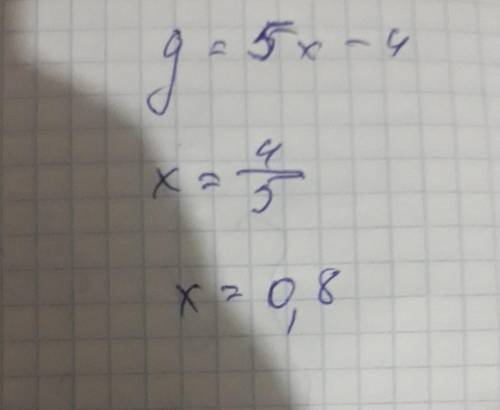 y = 5x - 4
x = 4/5
x = 0,8